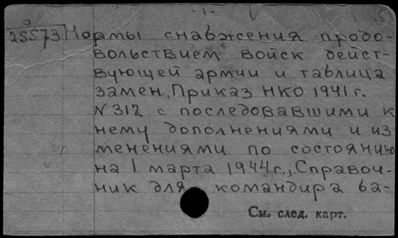 -1-
25573 Нормы снабжения продо-
вольствием войск дейст-
вующей армии и таблица
замен, Приказ НКО 1941 г.
N 312 с последовавшими к
нему дополнениями и из
менениями по состоянию
на 1 марта 1944г., Справоч-
ник для командира ба-
См. след. карт.